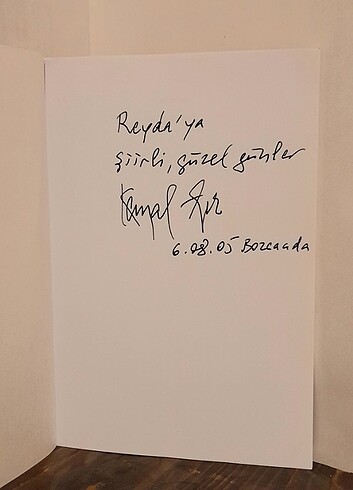 Reyda'ya
şiirli, güzel günler
Kemal
6.08.05 Bozcaada